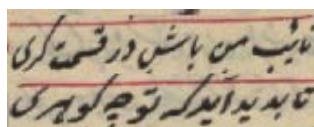 نائب من باش در قسمت گری
تا پدید آید که تو چه گوهری